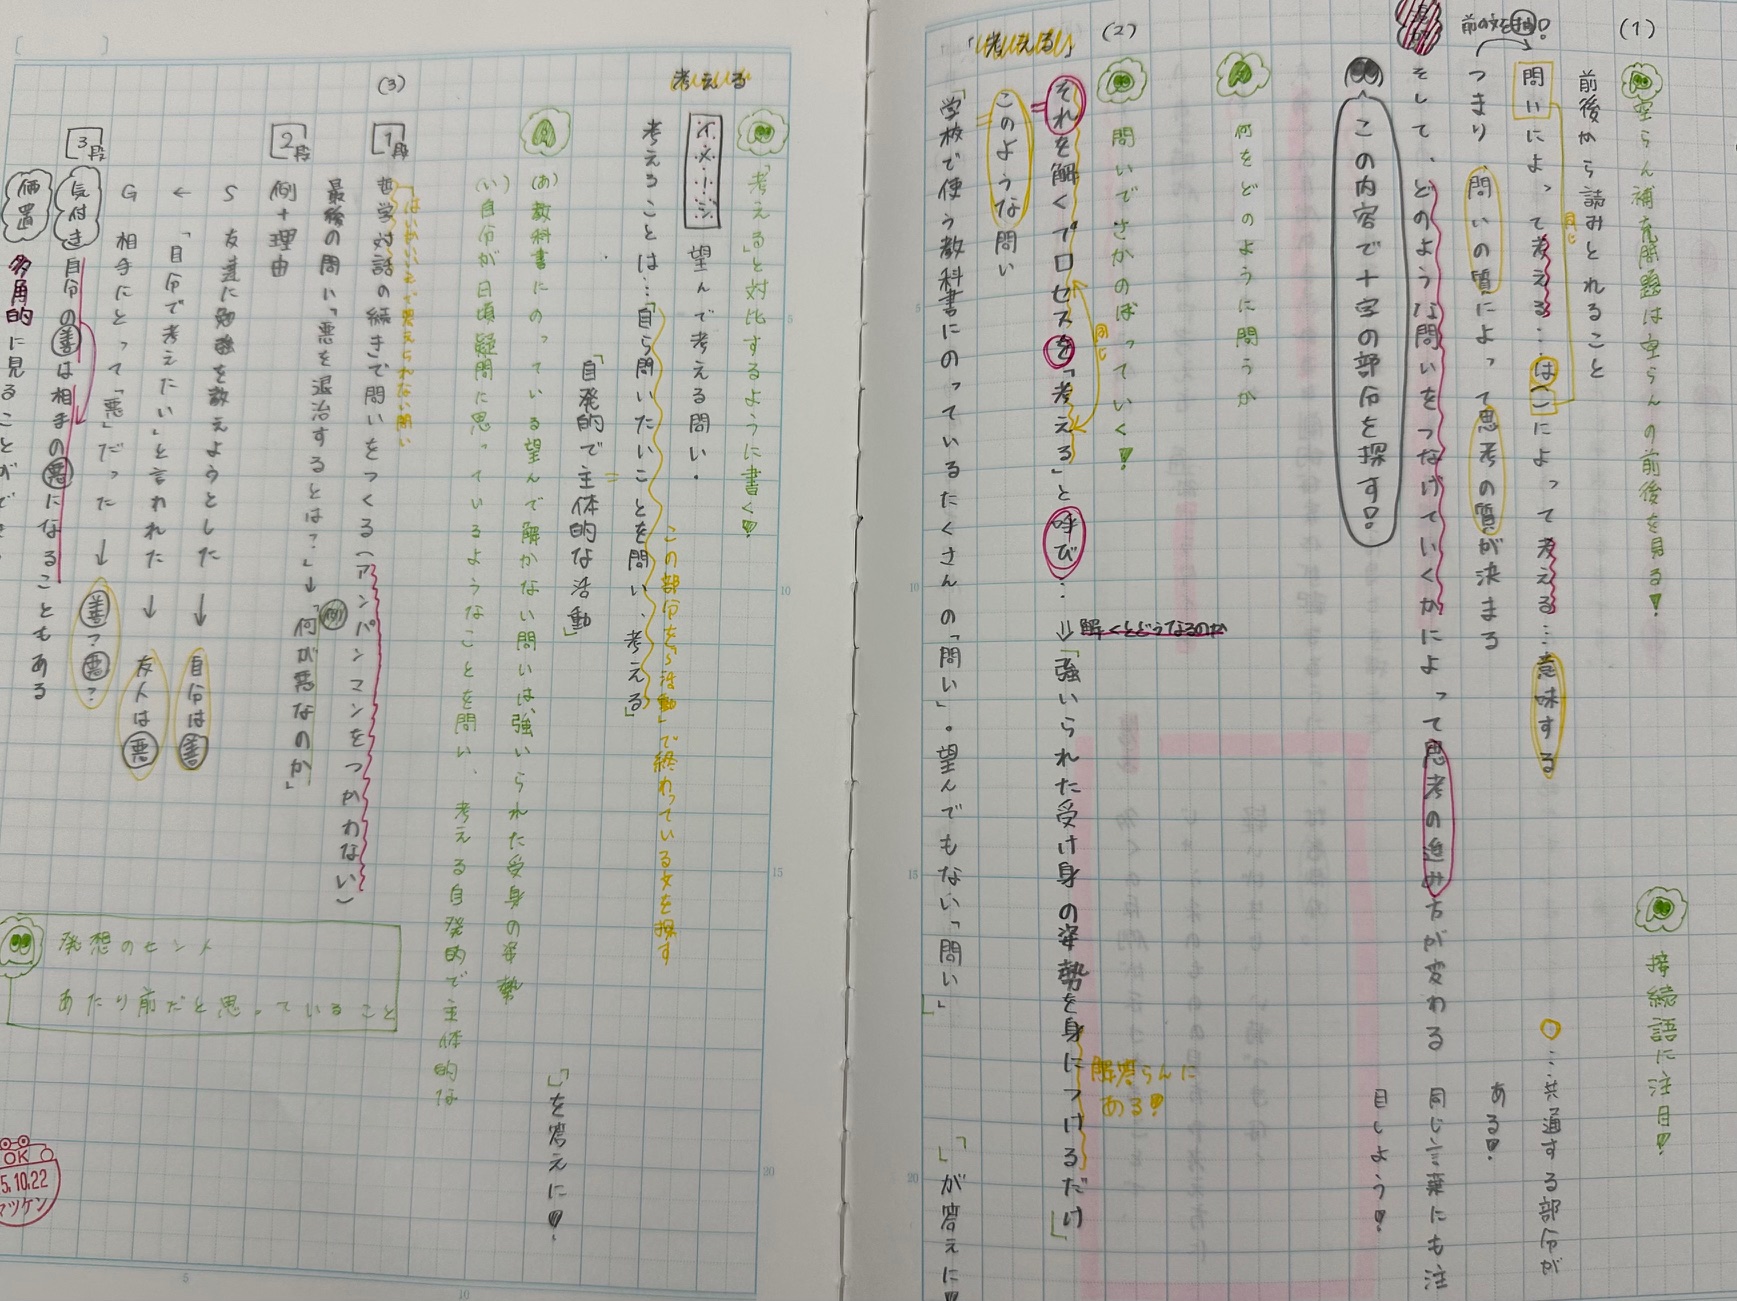 (1)
空らん補充問題は空らんの前後を見る!
接続語に注目!
前後から読みとれること
問いによって考える…は(こ)によって考える…意味する
同じ
○…共通する部分が
ある!
前の文を
つまり、問いの質によって思考の質が決まる
そして、どのような問いをつなげていくかによって思考の進み方が変わる
同じ言葉にも注
目しよう!
この内容で十字の部分を探す!
(2)
何をどのように問うか
問いでさかのぼっていく!
「考える」
それを解くプロセスを「考える」と呼び…
同じ
⇒「強いられた受け身の姿勢を身につけるだけ」
解くとどうなるのか
解答らんに
ある!
このような問い
「学校で使う教科書にのっているたくさんの「問い」。望んでもない「問い」」
「」が答えに!
「考える」と対比するように書く!
考える
望んで考える問い・
この部分を「〜活動」で終わっている文を探す
考えることは…「自ら問いたいことを問い、考える」
「自発的で主体的な活動」
(あ)教科書にのっている望んで解かない問いは、強いられた受身の姿勢
「」を答えに!
(い)自分が日頃疑問に思っているようなことを問い、考える自発的で主体的な
(3)
1段
哲学対話の続きで問いをつくる(アンパンマンをつかわない)
最後の問い「悪を退治するとは?」→「何が悪なのか」
例
2段
例+理由
S 友達に勉強を教えようとした → 自分は善
← 「自分で考えたい」と言われた → 友人は悪
G 相手にとって「悪」だった → 善?悪?
3段
気付き
自分の善は相手の悪になることもある
価置
多角的に見ることができ
発想のヒント
あたり前だと思っていること
OK
5.10.22
マツケン
5
10
15
20
5
10
15
20
5
10